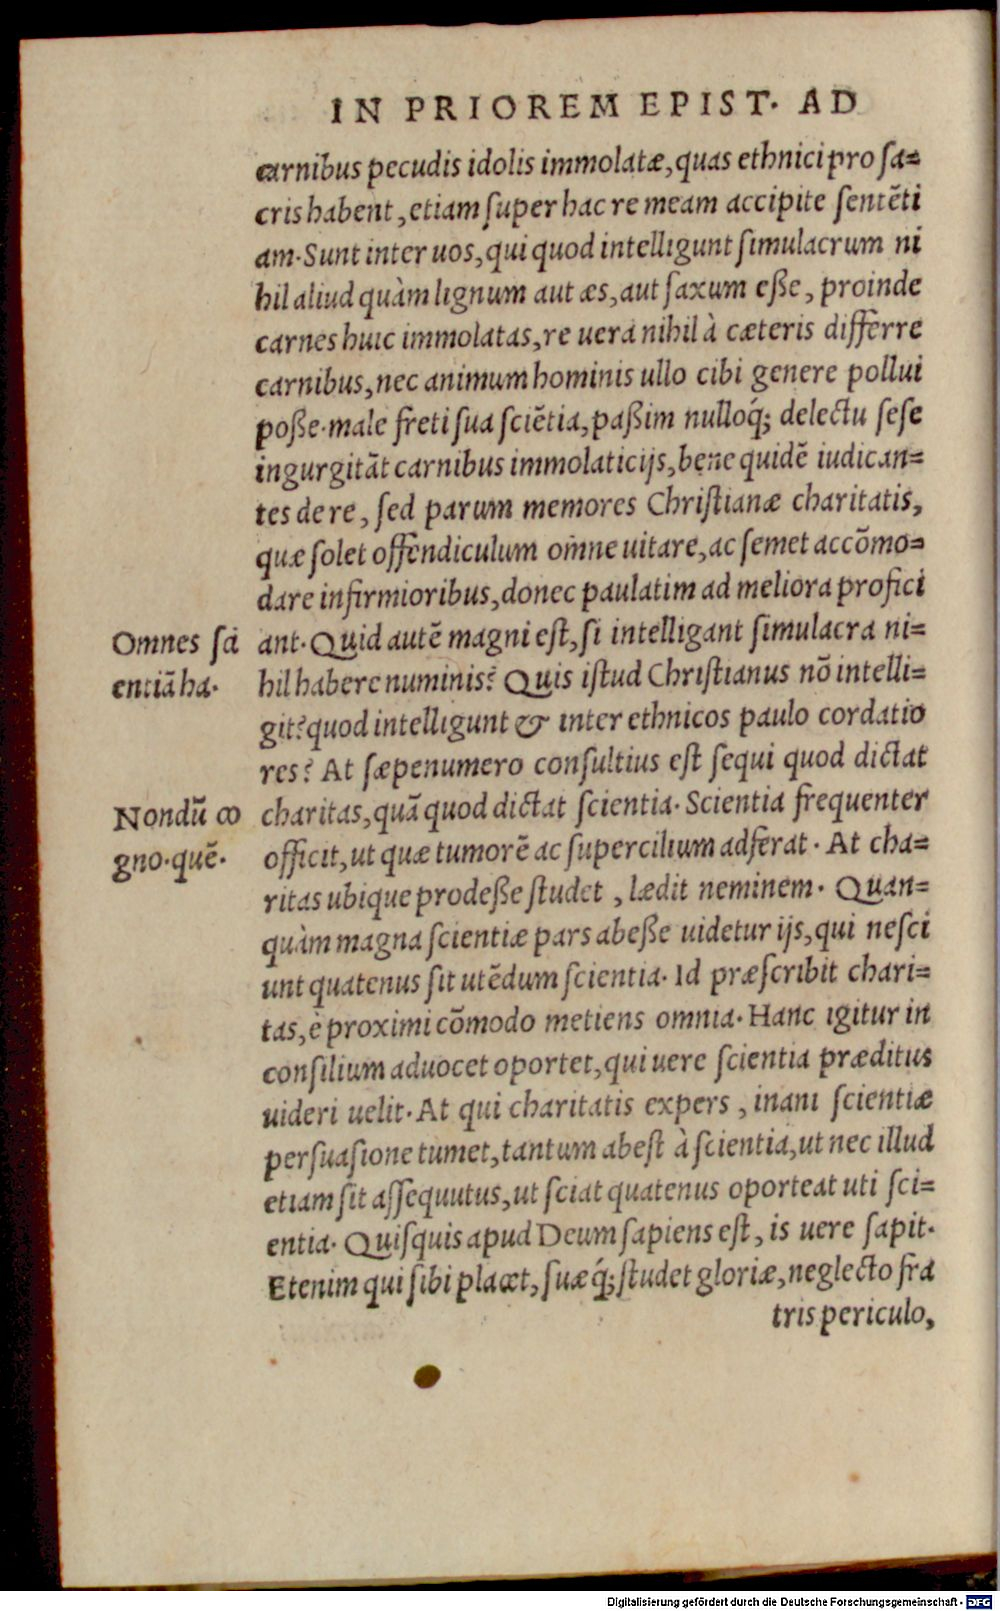 IN PRIOREM EPIST. AD
carnibus pecudis idolis immolatæ, quas ethnici pro ſa=
cris habent, etiam ſuper hac re meam accipite ſentẽti
am. Sunt inter uos, qui quod intelligunt ſimulacrum ni
hil aliud quàm lignum aut æs, aut ſaxum eſſe, proinde
carnes huic immolatas, re uera nihil à cæteris differre
carnibus, nec animum hominis ullo cibi genere pollui
poſſe. male freti ſua ſciẽtia, paſſim nulloq́; delectu ſeſe
ingurgitãt carnibus immolaticijs, bene quidẽ iudican=
tes de re, ſed parum memores Chriſtianæ charitatis,
quæ ſolet offendiculum omne uitare, ac ſemet accõmo=
dare infirmioribus, donec paulatim ad meliora profici
Omnes ſci
entiã ha.
ant. Quid autẽ magni eſt, ſi intelligant ſimulacra ni=
hil habere numinis? Quis iſtud Chriſtianus nõ intelli=
git? quod intelligunt & inter ethnicos paulo cordatio
res? At ſæpenumero conſultius eſt ſequi quod dictat
Nondũ co
gno. quẽ.
charitas, quã quod dictat ſcientia. Scientia frequenter
officit, ut quæ tumorẽ ac ſupercilium adferat. At cha=
ritas ubique prodeſſe ſtudet, lædit neminem. Quan=
quàm magna ſcientiæ pars abeſſe uidetur ijs, qui neſci
unt quatenus ſit utẽdum ſcientia. Id præſcribit chari=
tas, è proximi cõmodo metiens omnia. Hanc igitur in
conſilium aduocet oportet, qui uere ſcientia præditus
uideri uelit. At qui charitatis expers, inani ſcientiæ
perſuaſione tumet, tantum abeſt à ſcientia, ut nec illud
etiam ſit aſſequutus, ut ſciat quatenus oporteat uti ſci=
entia. Quiſquis apud Deum ſapiens eſt, is uere ſapit.
Etenim qui ſibi placet, ſuæq́; ſtudet gloriæ, neglecto fra
tris periculo,
Digitalisierung gefördert durch die Deutsche Forschungsgemeinschaft - DFG